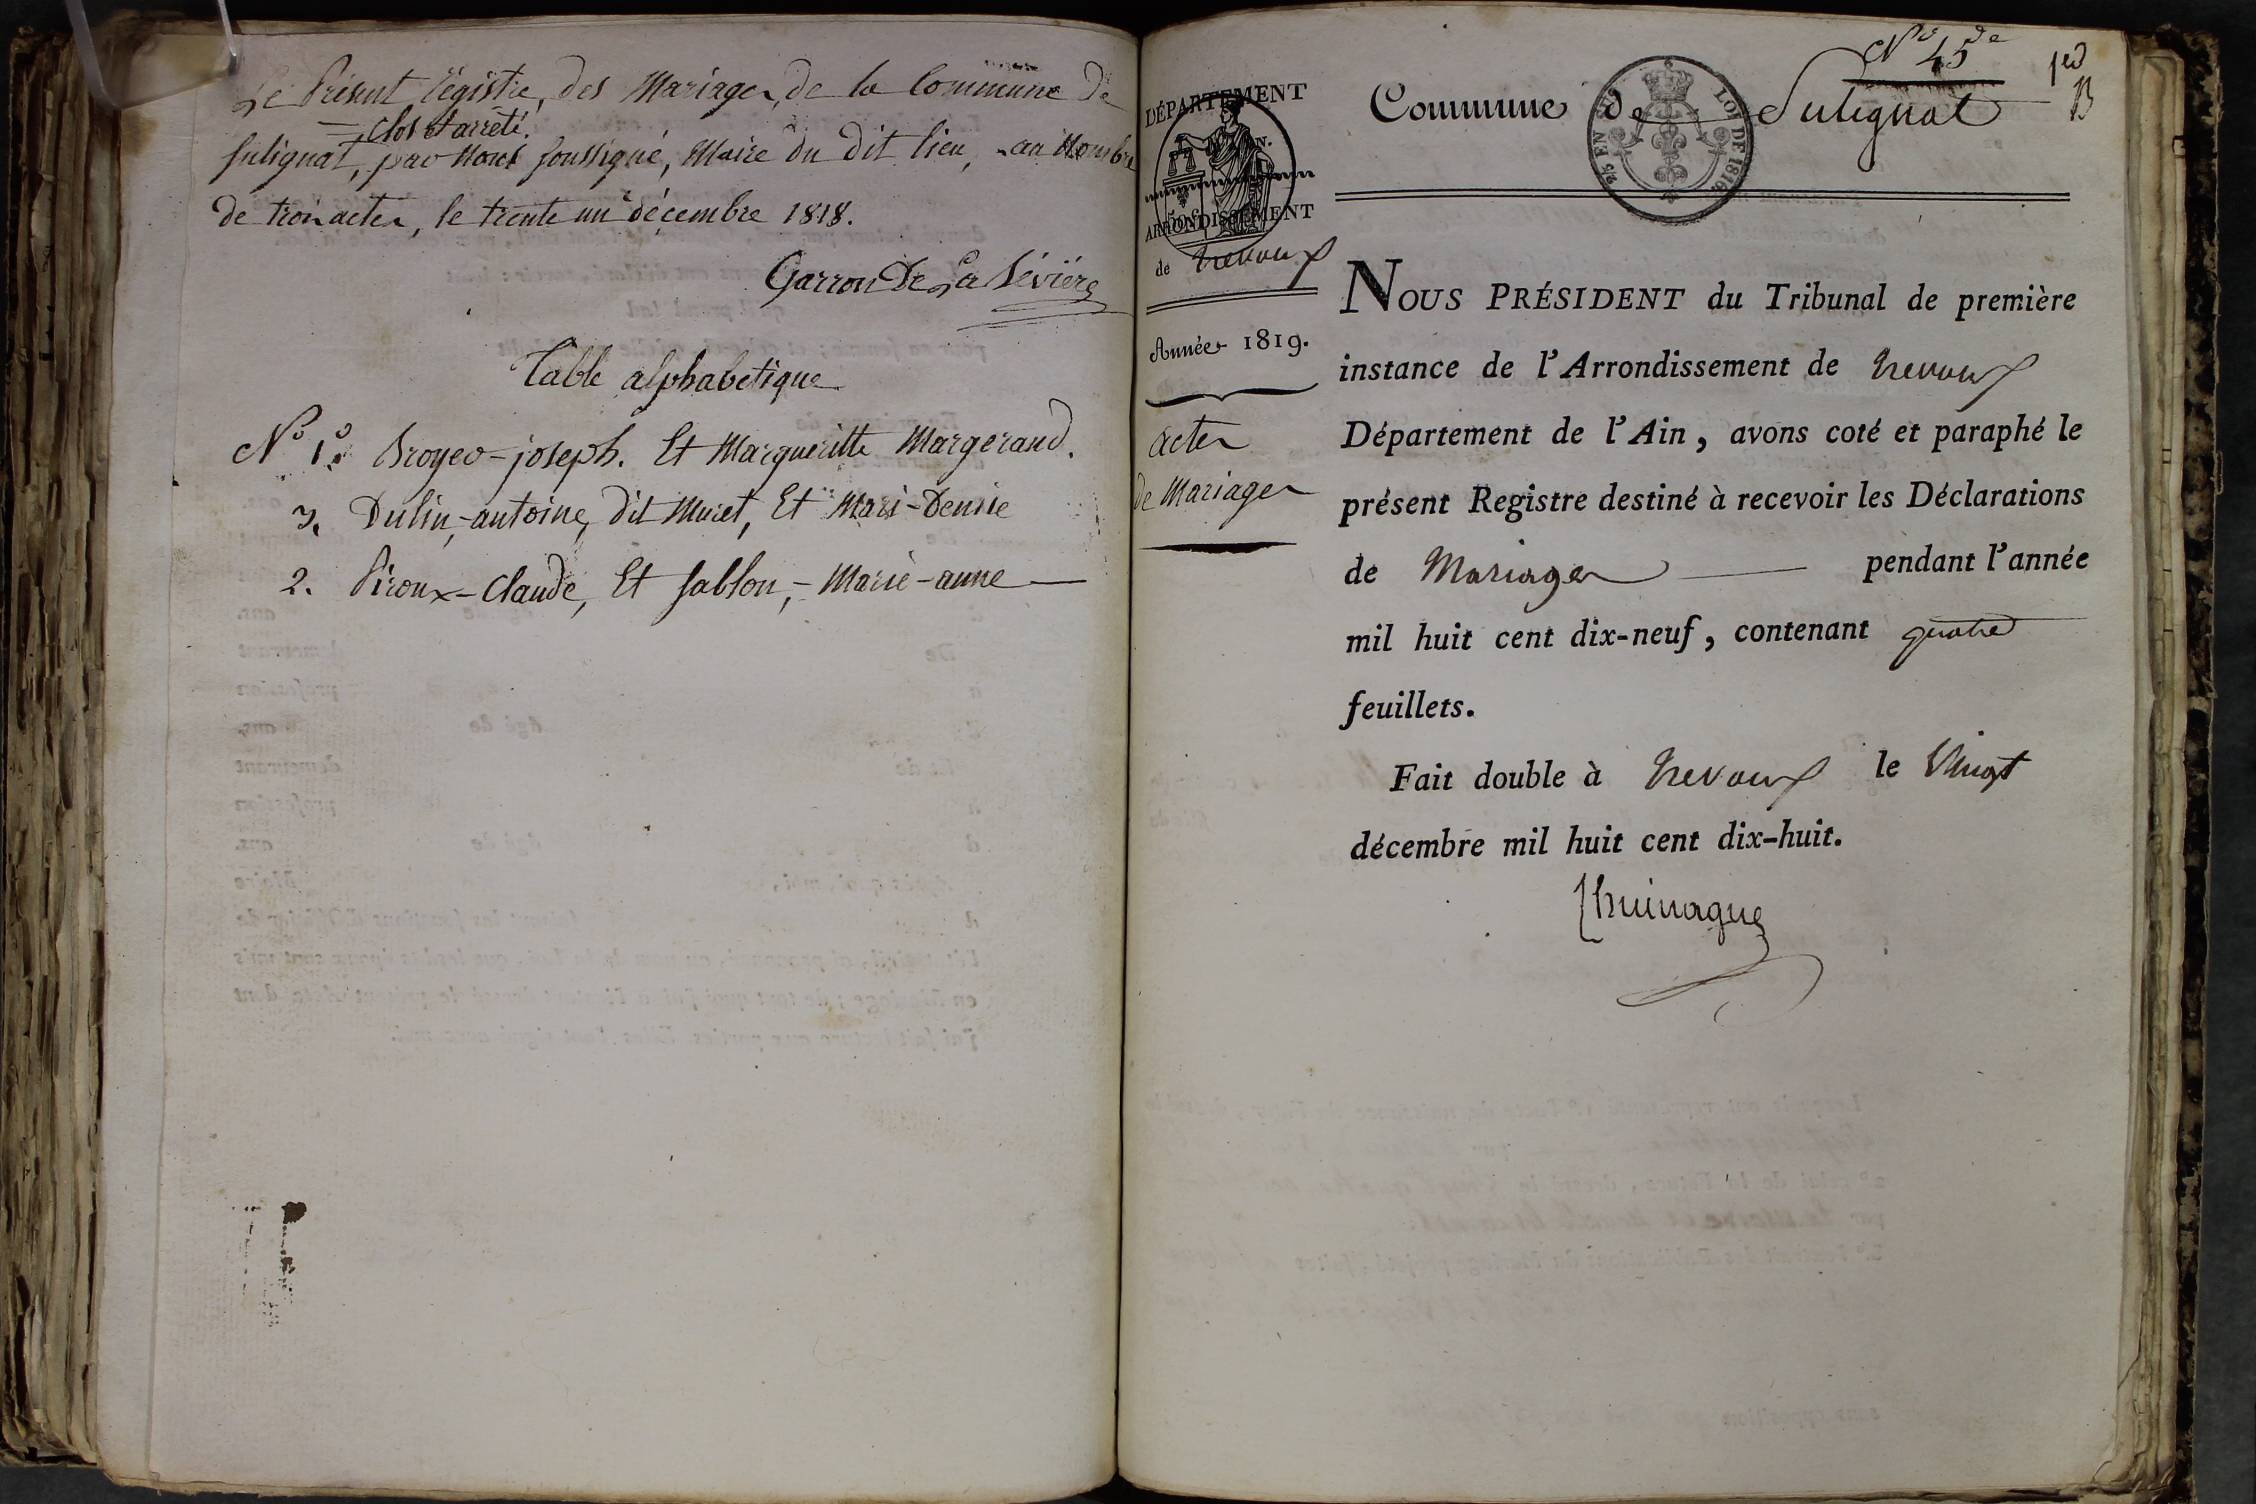 Le Présent Régistre, des Mariages, de la Commune de
= clos et arrêté.
Sulignat, par Nous soussigné, Maire du dit lieu, au Nombre
de trois actes, le trente un décembre 1818.
Garron De La Bévière
Table alphabetique
N° 1° Broyer-joseph. Et Margueritte Margerand.
3. Dulin,-antoine, dit Muret, Et Mari-Denise
2. Piroux-Claude, Et Sablon,-Marie-anne
N° 45 de
1er
B
Commune de Sulignat
2/5 EN SUS
LOI DE 1816.
DÉPARTEMENT
N.
50 c
ARRONDISSEMENT
de Trevoux
Année 1819.
Actes
de Mariages
NOUS PRÉSIDENT du Tribunal de première
instance de l'Arrondissement de Trevoux
Département de l'Ain, avons coté et paraphé le
présent Registre destiné à recevoir les Déclarations
de Mariages pendant l'année
mil huit cent dix-neuf, contenant quatre
feuillets.
Fait double à Trevoux le Vingt
décembre mil huit cent dix-huit.